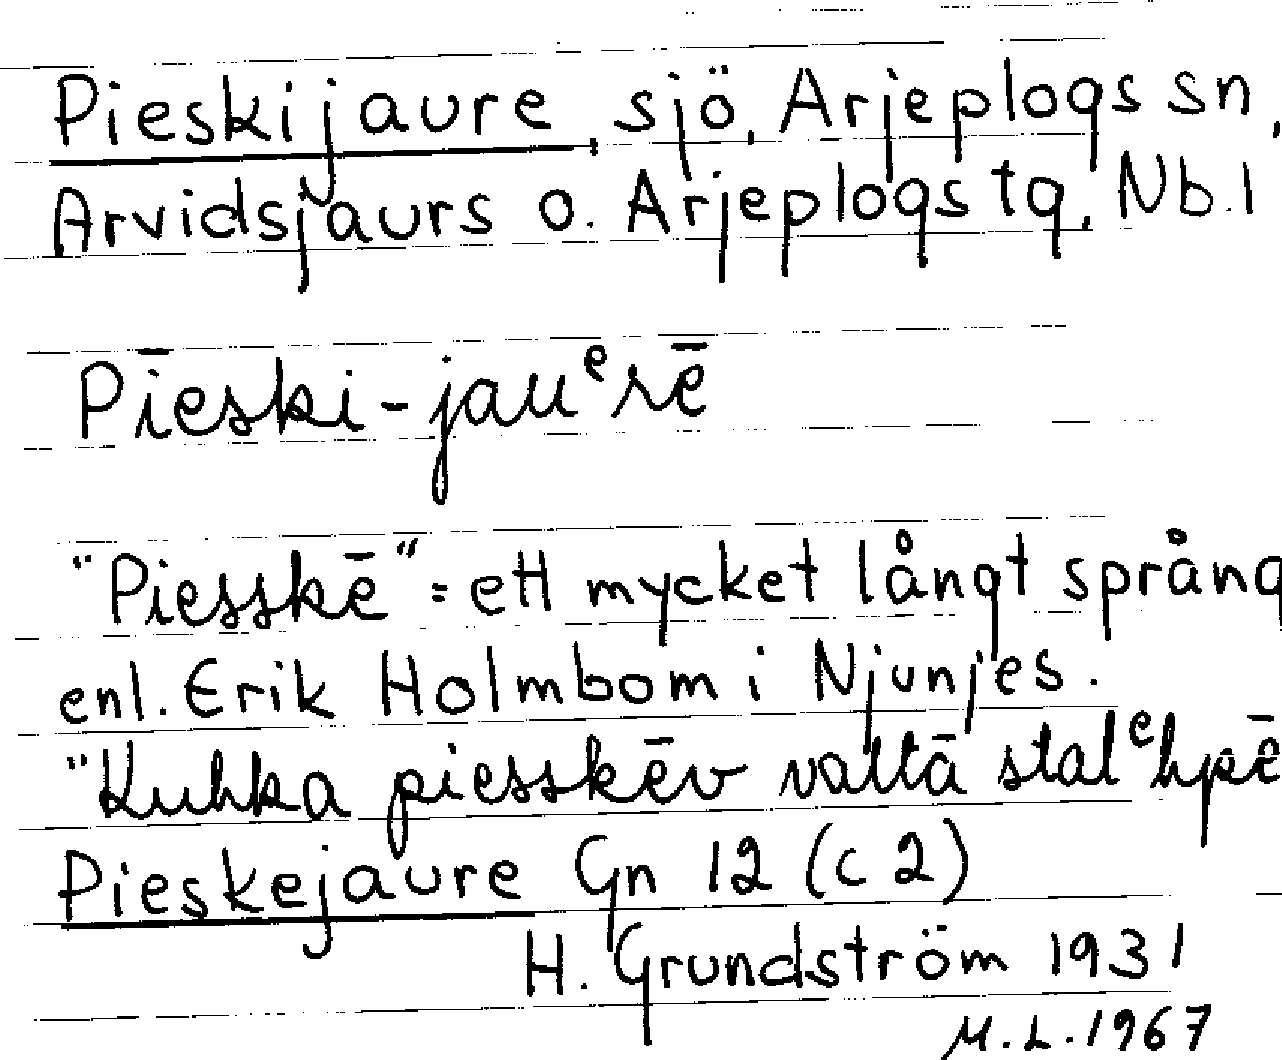 Pieskijaure, sjö, Arjeplogs sn,
Arvidsjaurs o. Arjeplogs tg, Nb. l
Pīeski-jauᵉrē
"Piesskē" = ett mycket långt språng
enl. Erik Holmbom i Njunjes.
"Kuhka piesskēv valtā stalᵉhpē
Pieskejaure Gn 12 (c 2)
H. Grundström 1931
M. L. 1967